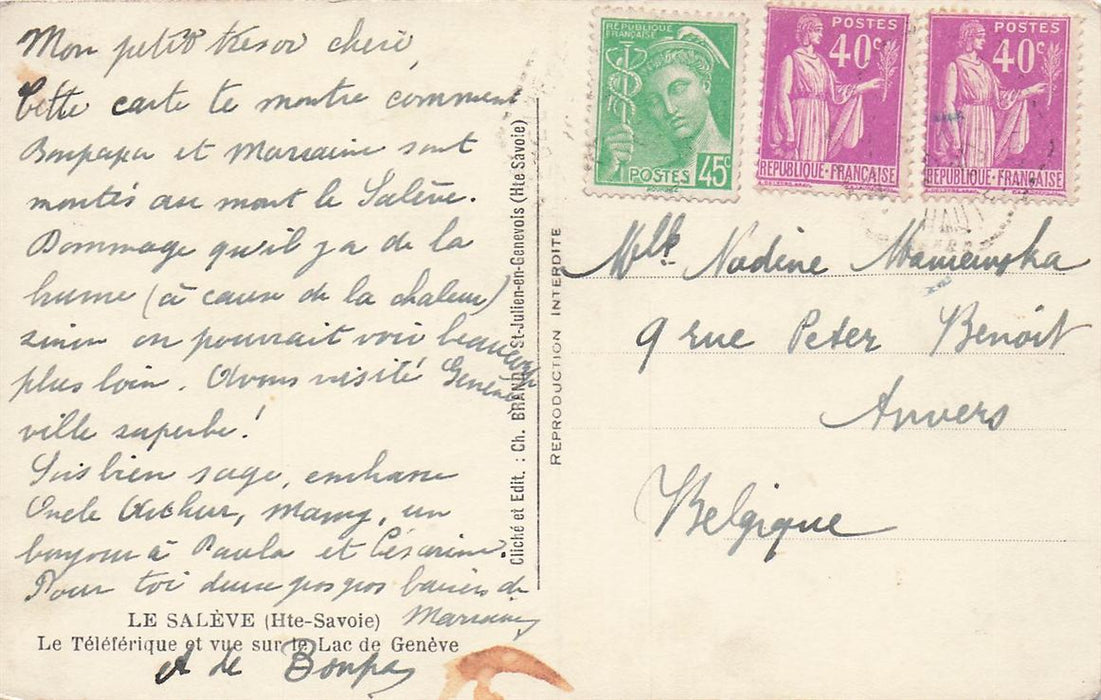 Mon petit tresor cheri,
Cette carte te montre comment
Bonpapa et Marraine sont
montés au mont le Salève.
Dommage qu'il y a de la
brume (à cause de la chaleur)
sinon on pourrait voir beaucoup
plus loin. Avons visité Genève
ville superbe!
Sois bien sage, embrasse
Oncle Arthur, Mamy, un
bonjour à Paula et Césarine.
Pour toi deux gos gos baisers de
Marraine
et de Bonpa
LE SALÈVE (Hte-Savoie)
Le Téléférique et vue sur le Lac de Genève
Cliché et Edit. : Ch. BRAND St-Julien-en-Genevois (Hte Savoie)
REPRODUCTION INTERDITE
RÉPUBLIQUE
FRANÇAISE
POSTES 45c
POSTES
40c
REPUBLIQUE-FRANÇAISE
POSTES
40c
REPUBLIQUE-FRANÇAISE
Mlle Nadine
9 rue Peter Benoit
Anvers
Belgique